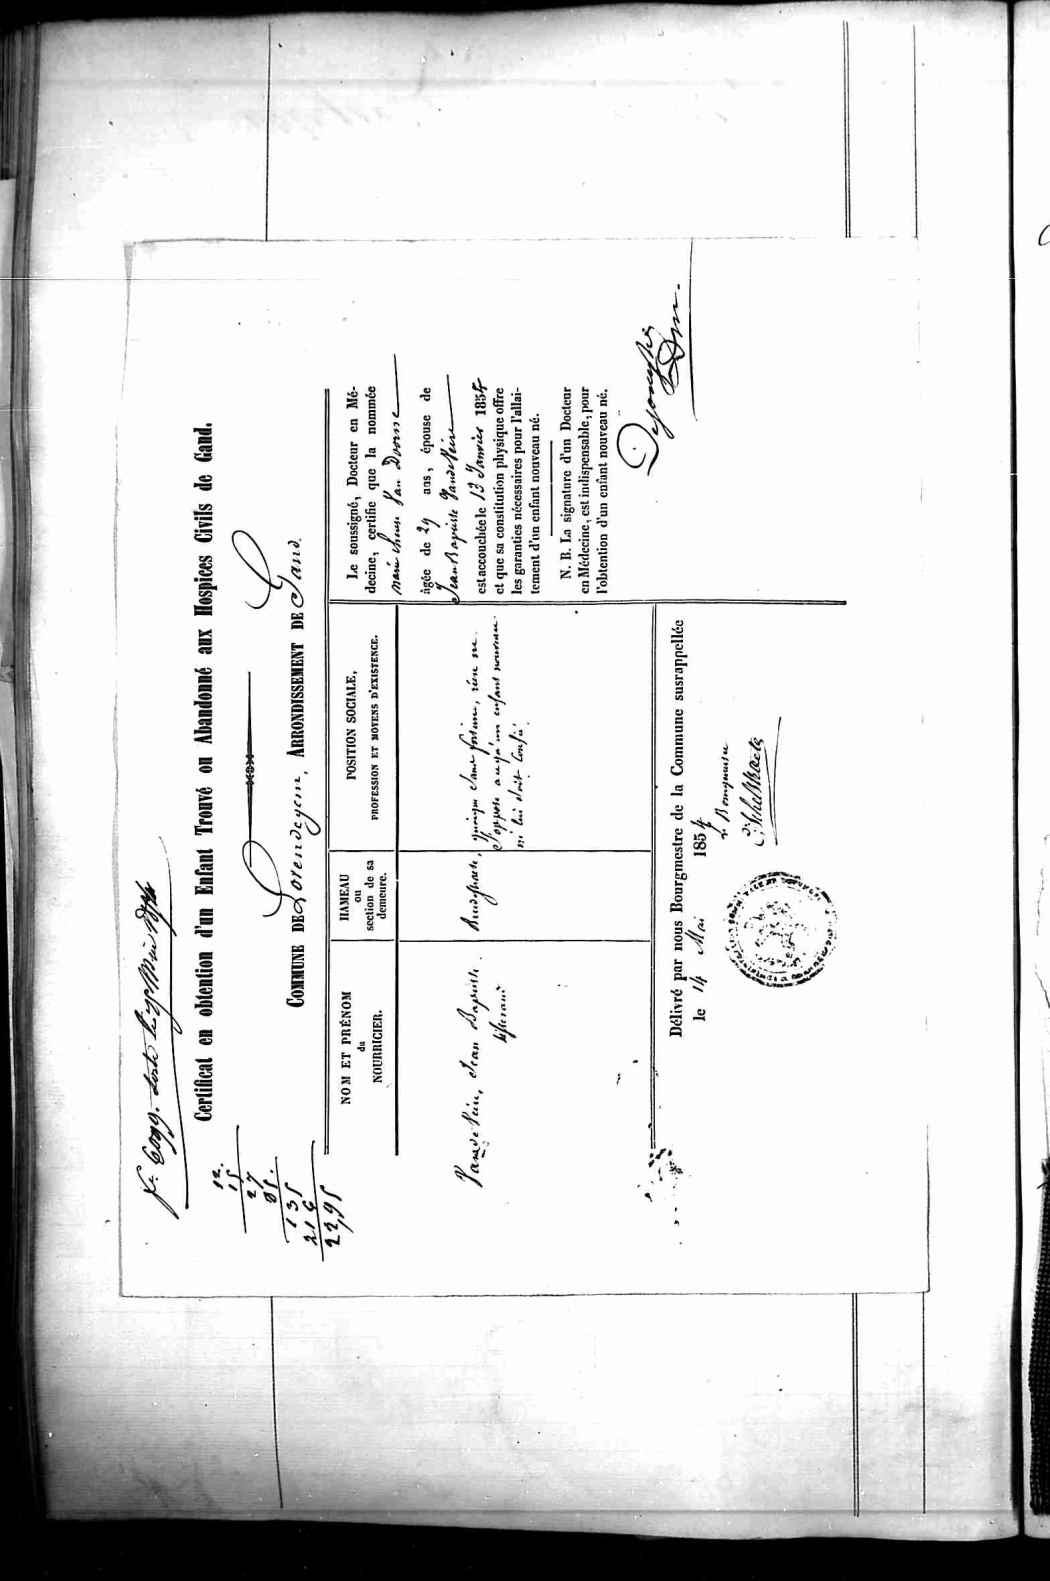 Certificat en obtention d'un Enfant Trouvé ou Abandonné aux Hospices Civils de Gand.
COMMUNE DE Lovendegem, ARRONDISSEMENT DE Gand.
12.
15
27
85.
135
216
22,95
NOM ET PRÉNOM
du
NOURRICIER.
HAMEAU
ou
section de sa
demeure.
POSITION SOCIALE,
PROFESSION ET MOYENS D'EXISTENCE.
Jean Baptiste
tisserand
quoique sans fortune, rien ne
s'oppose à ce qu'un enfant nouveau
né lui soit confié.
Le soussigné, Docteur en Mé-
decine, certifie que la nommée
Van Doorne
âgée de 29 ans, épouse de
Jean Baptiste
est accouchée le 13 Janvier 1854
et que sa constitution physique offre
les garanties nécessaires pour l'allai-
tement d'un enfant nouveau né.
N. B. La signature d'un Docteur
en Médecine, est indispensable, pour
l'obtention d'un enfant nouveau né.
Délivré par nous Bourgmestre de la Commune susrappellée
le 14 Mai 1854
Le Bourgmestre